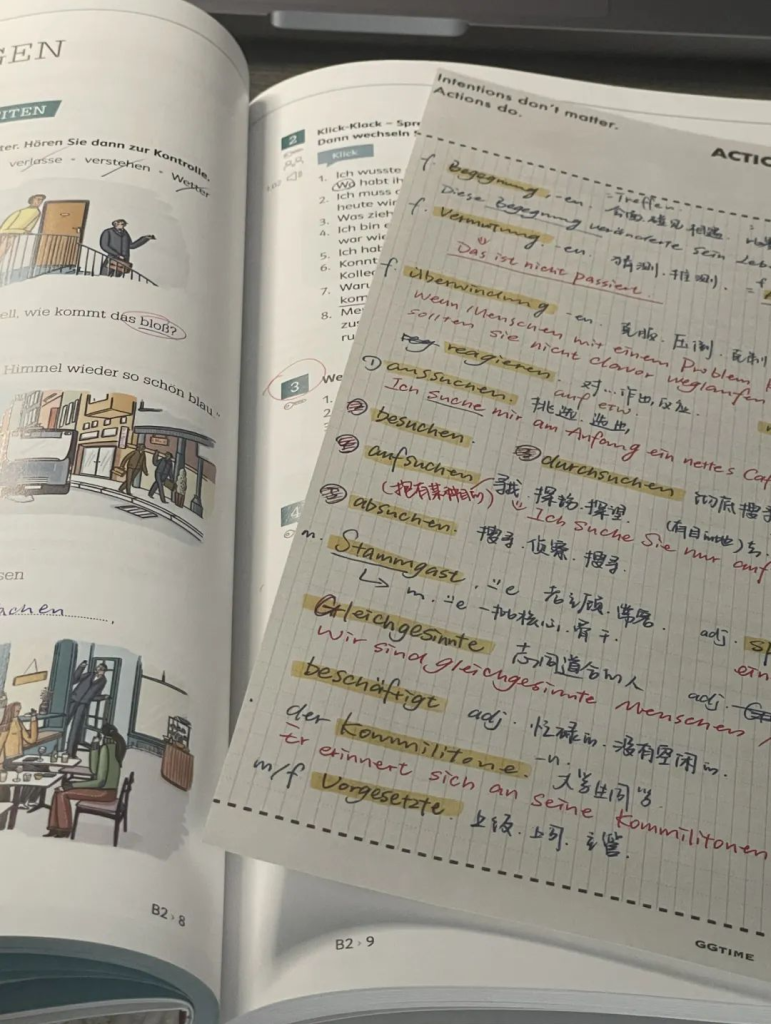 GEN
ITEN
ter. Hören Sie dann zur Kontrolle.
verlasse - verstehen - Wetter
ell, wie kommt das bloß?
Himmel wieder so schön blau.
sen
achen
B2 › 8
2
Klick-Klack – Spr
Dann wechseln S
Klick
1. Ich wusste
Wo habt ih
2. Ich muss
heute wir
3. Was zieh
4. Ich bin
war wie
5. Ich hab
6. Konnt
Kolle
7. Waru
kom
8. Me
zu
ru
3
We
1.
4
B2 › 9
Intentions don't matter.
Actions do.
ACTIO
f. Begegnung, -en. -Treffen
会面.碰见.相遇.
Diese Begegnung veränderte sein Leb
f. Vermutung, -en. 猜测.推测.
Das ist nicht passiert.
f. überwindung -en. 克服.压制.克制
Wenn Menschen mit einem Problem
sollten sie nicht davor weglaufen
reg reagieren. 对...作出反应.
auf etw.
① aussuchen. 挑选.选出
Ich suche mir am Anfang ein nettes Caf
② besuchen.
⑤ durchsuchen 彻底搜寻
aufsuchen 寻找.探访.探望.
Ich suche Sie nur auf
absuchen. 搜寻.侦察.搜寻.
m. Stammgast. ⸚e 老主顾.常客.
m. ⸚e 一批核心.骨干.
Gleichgesinnte 志同道合的人
Wir sind gleichgesinnte Menschen
adj. sp
ein
adj.
beschäftigt adj. 忙碌的.没有空闲的.
der Kommilitone. -n. 大学生同学
Er erinnert sich an seine Kommilitonen
m/f Vorgesetzte. 上级.上司.主管.
GGTIME